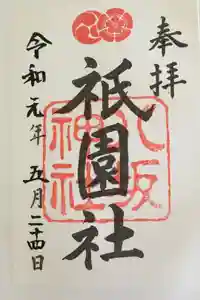 奉拝
祇園社
八坂神社
令和元年五月二十四日